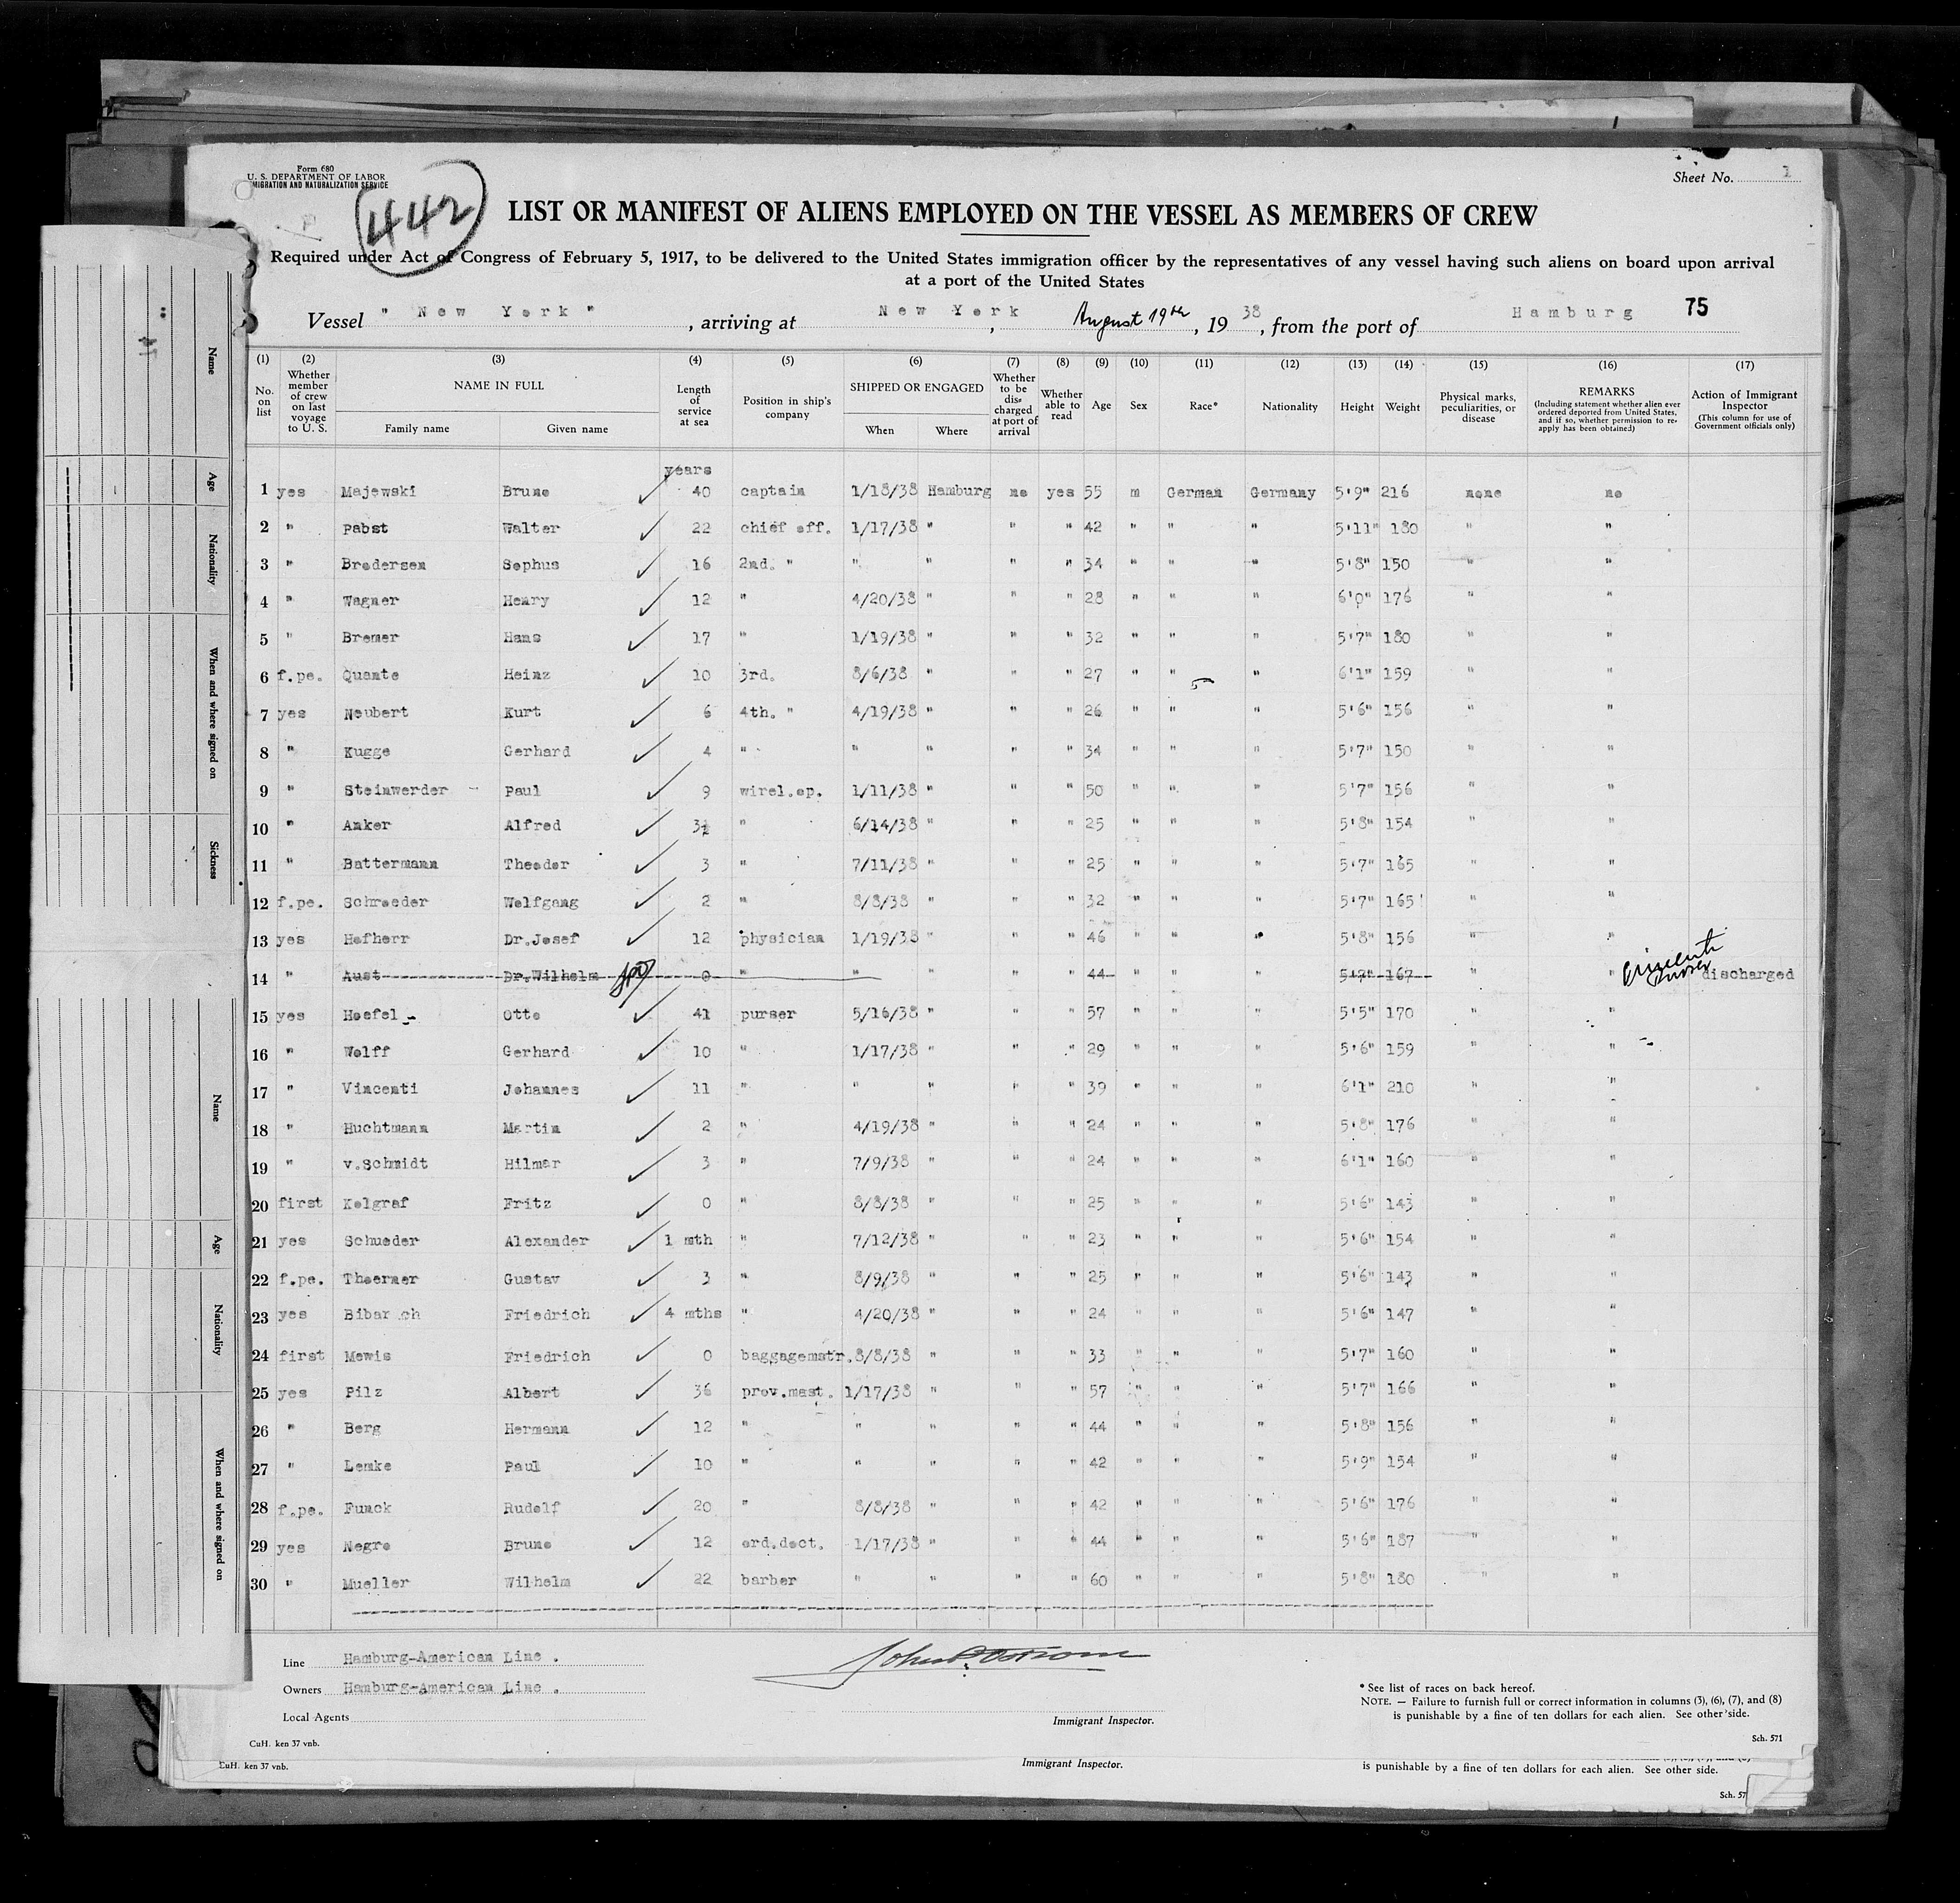 Form 680
U. S. DEPARTMENT OF LABOR
IMMIGRATION AND NATURALIZATION SERVICE
442
Sheet No. 1
LIST OR MANIFEST OF ALIENS EMPLOYED ON THE VESSEL AS MEMBERS OF CREW
Required under Act of Congress of February 5, 1917, to be delivered to the United States immigration officer by the representatives of any vessel having such aliens on board upon arrival
at a port of the United States
Vessel " New York ", arriving at New York, August 19th, 1938, from the port of Hamburg 75
(1) (2) (3) (4) (5) (6) (7) (8) (9) (10) (11) (12) (13) (14) (15) (16) (17)
No. on list
Whether member of crew on last voyage to U. S.
NAME IN FULL
Family name Given name
Length of service at sea
Position in ship's company
SHIPPED OR ENGAGED
When Where
Whether to be discharged at port of arrival
Whether able to read
Age
Sex
Race*
Nationality
Height
Weight
Physical marks, peculiarities, or disease
REMARKS
(Including statement whether alien ever ordered deported from United States, and if so, whether permission to reapply has been obtained)
Action of Immigrant Inspector
(This column for use of Government officials only)
years
1 yes Majewski Bruno 40 captain 1/18/38 Hamburg no yes 55 m German Germany 5'9" 216 none no
2 " Pabst Walter 22 chief off. 1/17/38 " " " 42 " " " 5'11" 180 " "
3 " Brodersen Sophus 16 2nd. " " " " " 34 " " " 5'8" 150 " "
4 " Wagner Henry 12 " 4/20/38 " " " 28 " " " 6'0" 176 " "
5 " Bremer Hans 17 " 1/19/38 " " " 32 " " " 5'7" 180 " "
6 f.pe. Quante Heinz 10 3rd. 8/6/38 " " " 27 " " " 6'1" 159 " "
7 yes Neubert Kurt 6 4th. " 4/19/38 " " " 26 " " " 5'6" 156 " "
8 " Kugge Gerhard 4 " " " " " 34 " " " 5'7" 150 " "
9 " Steinwerder Paul 9 wirel.op. 1/11/38 " " " 50 " " " 5'7" 156 " "
10 " Anker Alfred 3½ " 6/14/38 " " " 25 " " " 5'8" 154 " "
11 " Battermann Theodor 3 " 7/11/38 " " " 25 " " " 5'7" 165 " "
12 f.pe. Schroeder Wolfgang 2 " 8/8/38 " " " 32 " " " 5'7" 165 " "
13 yes Hofherr Dr.Josef 12 physician 1/19/38 " " " 46 " " " 5'8" 156 " "
14 " Aust Dr.Wilhelm 0 " " " " " 44 " " " 5'7" 167 " " discharged
15 yes Hoefel Otto 41 purser 5/16/38 " " " 57 " " " 5'5" 170 " "
16 " Wolff Gerhard 10 " 1/17/38 " " " 29 " " " 5'6" 159 " "
17 " Vincenti Johannes 11 " " " " " 39 " " " 6'1" 210 " "
18 " Huchtmann Martin 2 " 4/19/38 " " " 24 " " " 5'8" 176 " "
19 " v.Schmidt Hilmar 3 " 7/9/38 " " " 24 " " " 6'1" 160 " "
20 first Kolgraf Fritz 0 " 8/8/38 " " " 25 " " " 5'6" 143 " "
21 yes Schueder Alexander 1 mth " 7/12/38 " " " 23 " " " 5'6" 154 " "
22 f.pe. Thoermer Gustav 3 " 8/9/38 " " " 25 " " " 5'6" 143 " "
23 yes Friedrich 4 mths " 4/20/38 " " " 24 " " " 5'6" 147 " "
24 first Mewis Friedrich 0 baggagemstr. 8/8/38 " " " 33 " " " 5'7" 160 " "
25 yes Pilz Albert 36 prov.mast. 1/17/38 " " " 57 " " " 5'7" 166 " "
26 " Berg Hermann 12 " " " " " 44 " " " 5'8" 156 " "
27 " Lemke Paul 10 " " " " " 42 " " " 5'9" 154 " "
28 f.pe. Funck Rudolf 20 " 8/8/38 " " " 42 " " " 5'6" 176 " "
29 yes Negro Bruno 12 ord.doct. 1/17/38 " " " 44 " " " 5'6" 187 " "
30 " Mueller Wilhelm 22 barber " " " " 60 " " " 5'8" 180 " "
Line Hamburg-American Line .
Owners Hamburg-American Line .
Local Agents
Immigrant Inspector.
* See list of races on back hereof.
NOTE. — Failure to furnish full or correct information in columns (3), (6), (7), and (8)
is punishable by a fine of ten dollars for each alien. See other side.
CuH. ken 37 vnb.
Sch. 571
CuH. ken 37 vnb.
Immigrant Inspector.
is punishable by a fine of ten dollars for each alien. See other side.
Sch. 57
Name
Age
Nationality
When and where signed on
Sickness
Name
Age
Nationality
When and where signed on